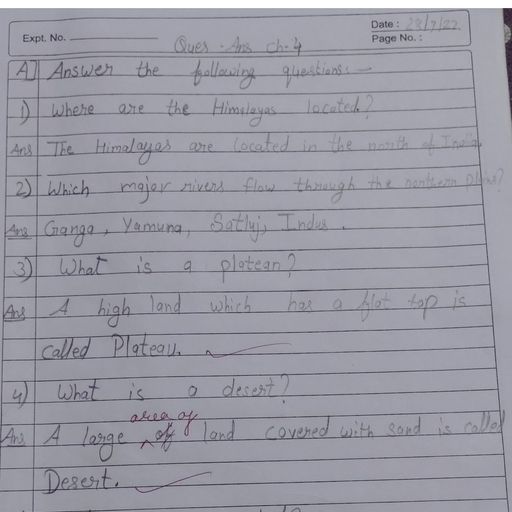 Expt. No.
Date : 28/7/22
Page No. :
Ques - Ans Ch-4
A] Answer the following questions :-
1) Where are the Himalayas located?
Ans The Himalayas are located in the north of India.
2) Which major rivers flow through the northern plains?
Ans Ganga, Yamuna, Satluj, Indus.
3) What is a platean?
Ans A high land which has a flat top is
called Plateau.
4) What is a desert?
area of
Ans A large of land covered with sand is called
Desert.